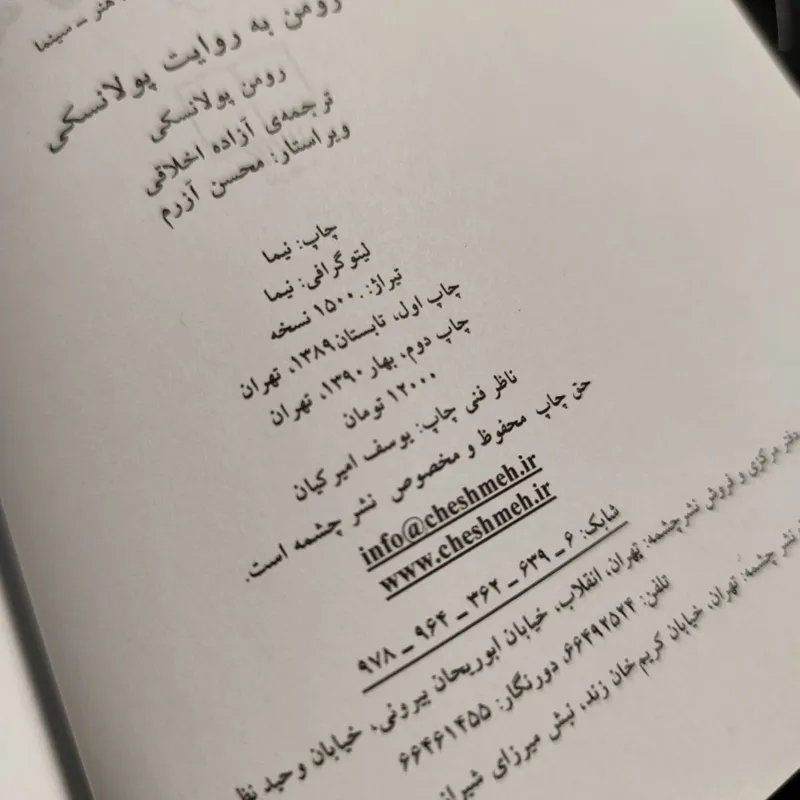 هنر ــ سینما
رومن به روایت پولانسکی
رومن پولانسکی
ترجمه‌ی آزاده اخلاقی
ویراستار: محسن آزرم
چاپ: نیما
لیتوگرافی: نیما
تیراژ: ۱۵۰۰ نسخه
چاپ اول، تابستان ۱۳۸۹، تهران
چاپ دوم، بهار ۱۳۹۰، تهران
۱۲۰۰۰ تومان
ناظر فنی چاپ: یوسف امیرکیان
حق چاپ محفوظ و مخصوص نشر چشمه است.
info@cheshmeh.ir
www.cheshmeh.ir
شابک: ۶ ــ ۶۳۹ ــ ۳۶۲ ــ ۹۶۴ ــ ۹۷۸
دفتر مرکزی و فروش نشرچشمه: تهران، انقلاب، خیابان ابوریحان بیرونی، خیابان وحید
تلفن: ۶۶۴۹۲۵۲۴، دورنگار: ۶۶۴۶۱۴۵۵
نشر چشمه: تهران، خیابان کریم خان زند، نبش میرزای